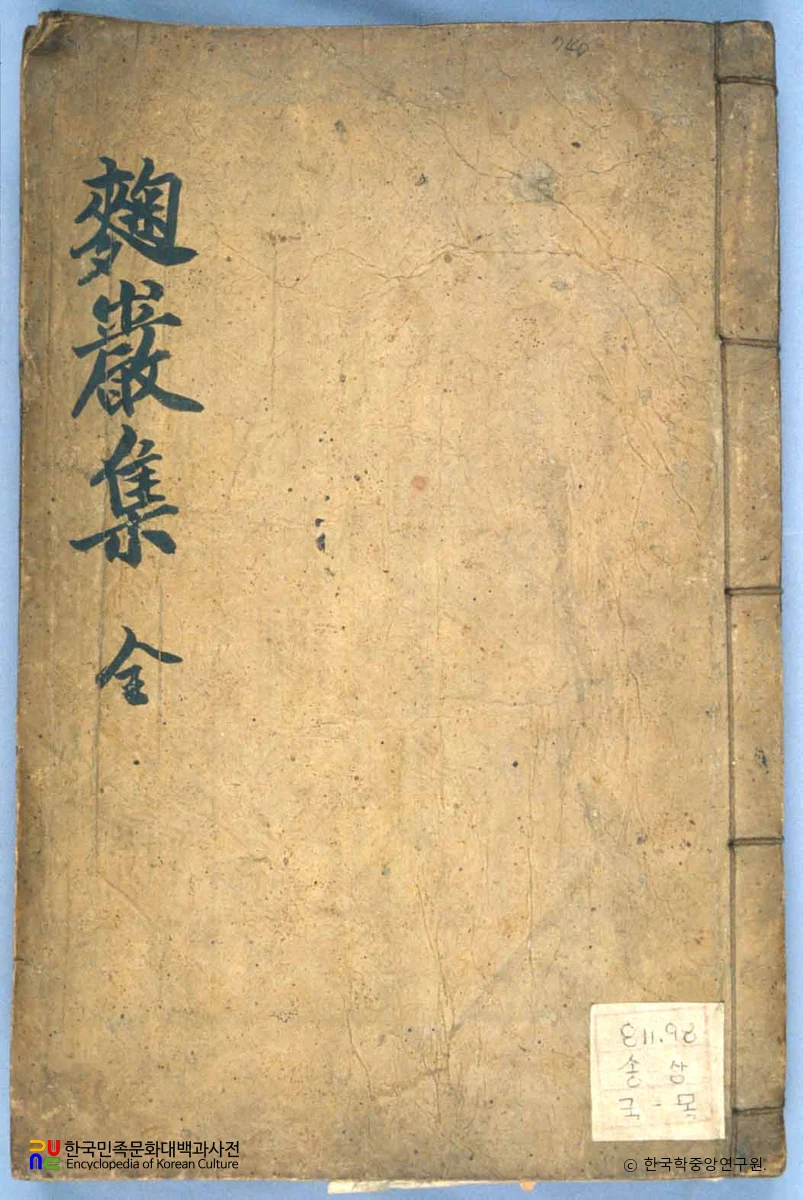 麴巖集 全
송 상
국-목
한국민족문화대백과사전
Encyclopedia of Korean Culture
© 한국학중앙연구원.